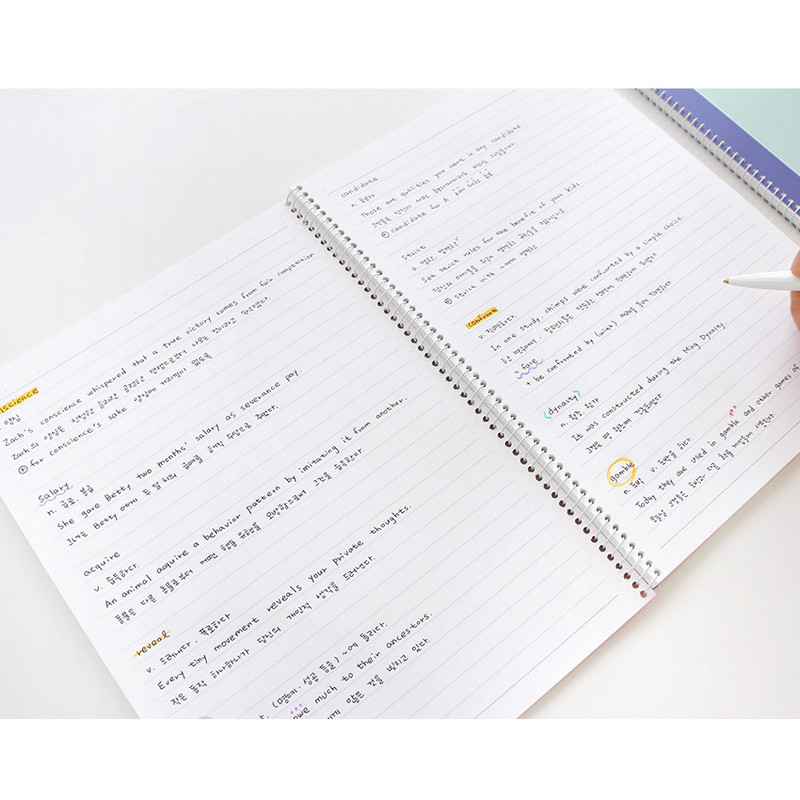 science
양심
Zach's conscience whispered that a true victory comes from fair competition
Zach의 양심은 진정한 승리란 공정한 경쟁으로부터 나오는 것이라고
for conscience's sake 양심에 거리낌이 없도록
salary
n. 급료, 봉급
She gave Betty two months' salary as severance pay.
그녀는 Betty 에게 두 달 치의 급여를 해직 수당으로 주었다.
acquire
v. 습득하다
An animal acquire a behavior pattern by imitating it from another.
동물은 다른 동물로부터 어떤 행동 유형을 모방함으로써 그것을 습득한다.
reveal
v. 드러내다, 폭로하다
Every tiny movement reveals your private thoughts.
작은 동작 하나하나가 당신의 개인적 생각을 드러낸다.
(명예, 성공 등을) ~에 돌리다.
owe much to their ancestors.
많은 것을 빚지고 있다.
candidate
n. 후보자
Those are qualities you want in any candidate
candidate for A
Strict
a. 엄한, 엄격한
Set strict rules for the benefit of your kids
strict with ~에게 엄격한
confront
v. 직면하다
In one study, chimps were confronted by a simple choice
= face
+ be confronted by (with)
dynasty
n. 왕조, 왕가
It was constructed during the Ming Dynasty.
그것은 명 왕조에 건설되었다.
gamble
n. 도박 v. 도박을 하다
Today they are used in gamble and other games of